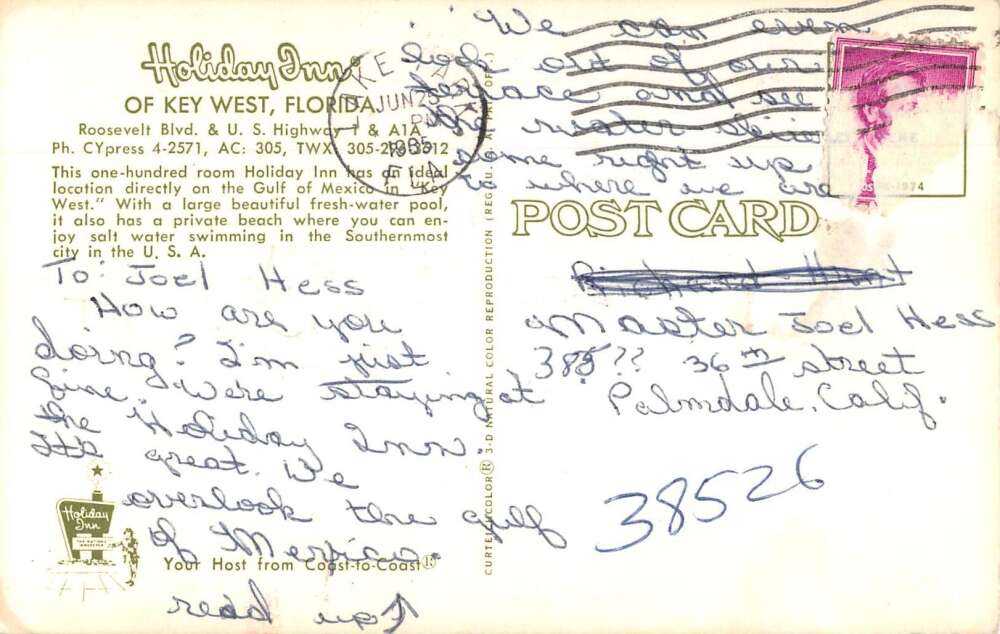 Holiday Inn®
OF KEY WEST, FLORIDA
Roosevelt Blvd. & U. S. Highway 1 & A1A
Ph. CYpress 4-2571, AC: 305, TWX 305-2 12
This one-hundred room Holiday Inn has an ideal
location directly on the Gulf of Mexico in "Key
West." With a large beautiful fresh-water pool,
it also has a private beach where you can en-
joy salt water swimming in the Southernmost
city in the U. S. A.
To: Joel Hess
How are you
doing? I'm just
fine. We're staying at
the Holiday Inn.
It's great. We
overlook the gulf
of Mexico.
read up↑
Holiday
Inn
Your Host from Coast-to-Coast®
We can even
look out of our
terrace and see
the water
come right up
to where we are
JUN 25
PM
1965
CURTEICHCOLOR® 3-D NATURAL COLOR REPRODUCTION (REG. U. S. PAT. OFF.)
POST CARD
Richard Hunt
Master Joel Hess
385?? 36th street
Palmdale, Calif.
38526